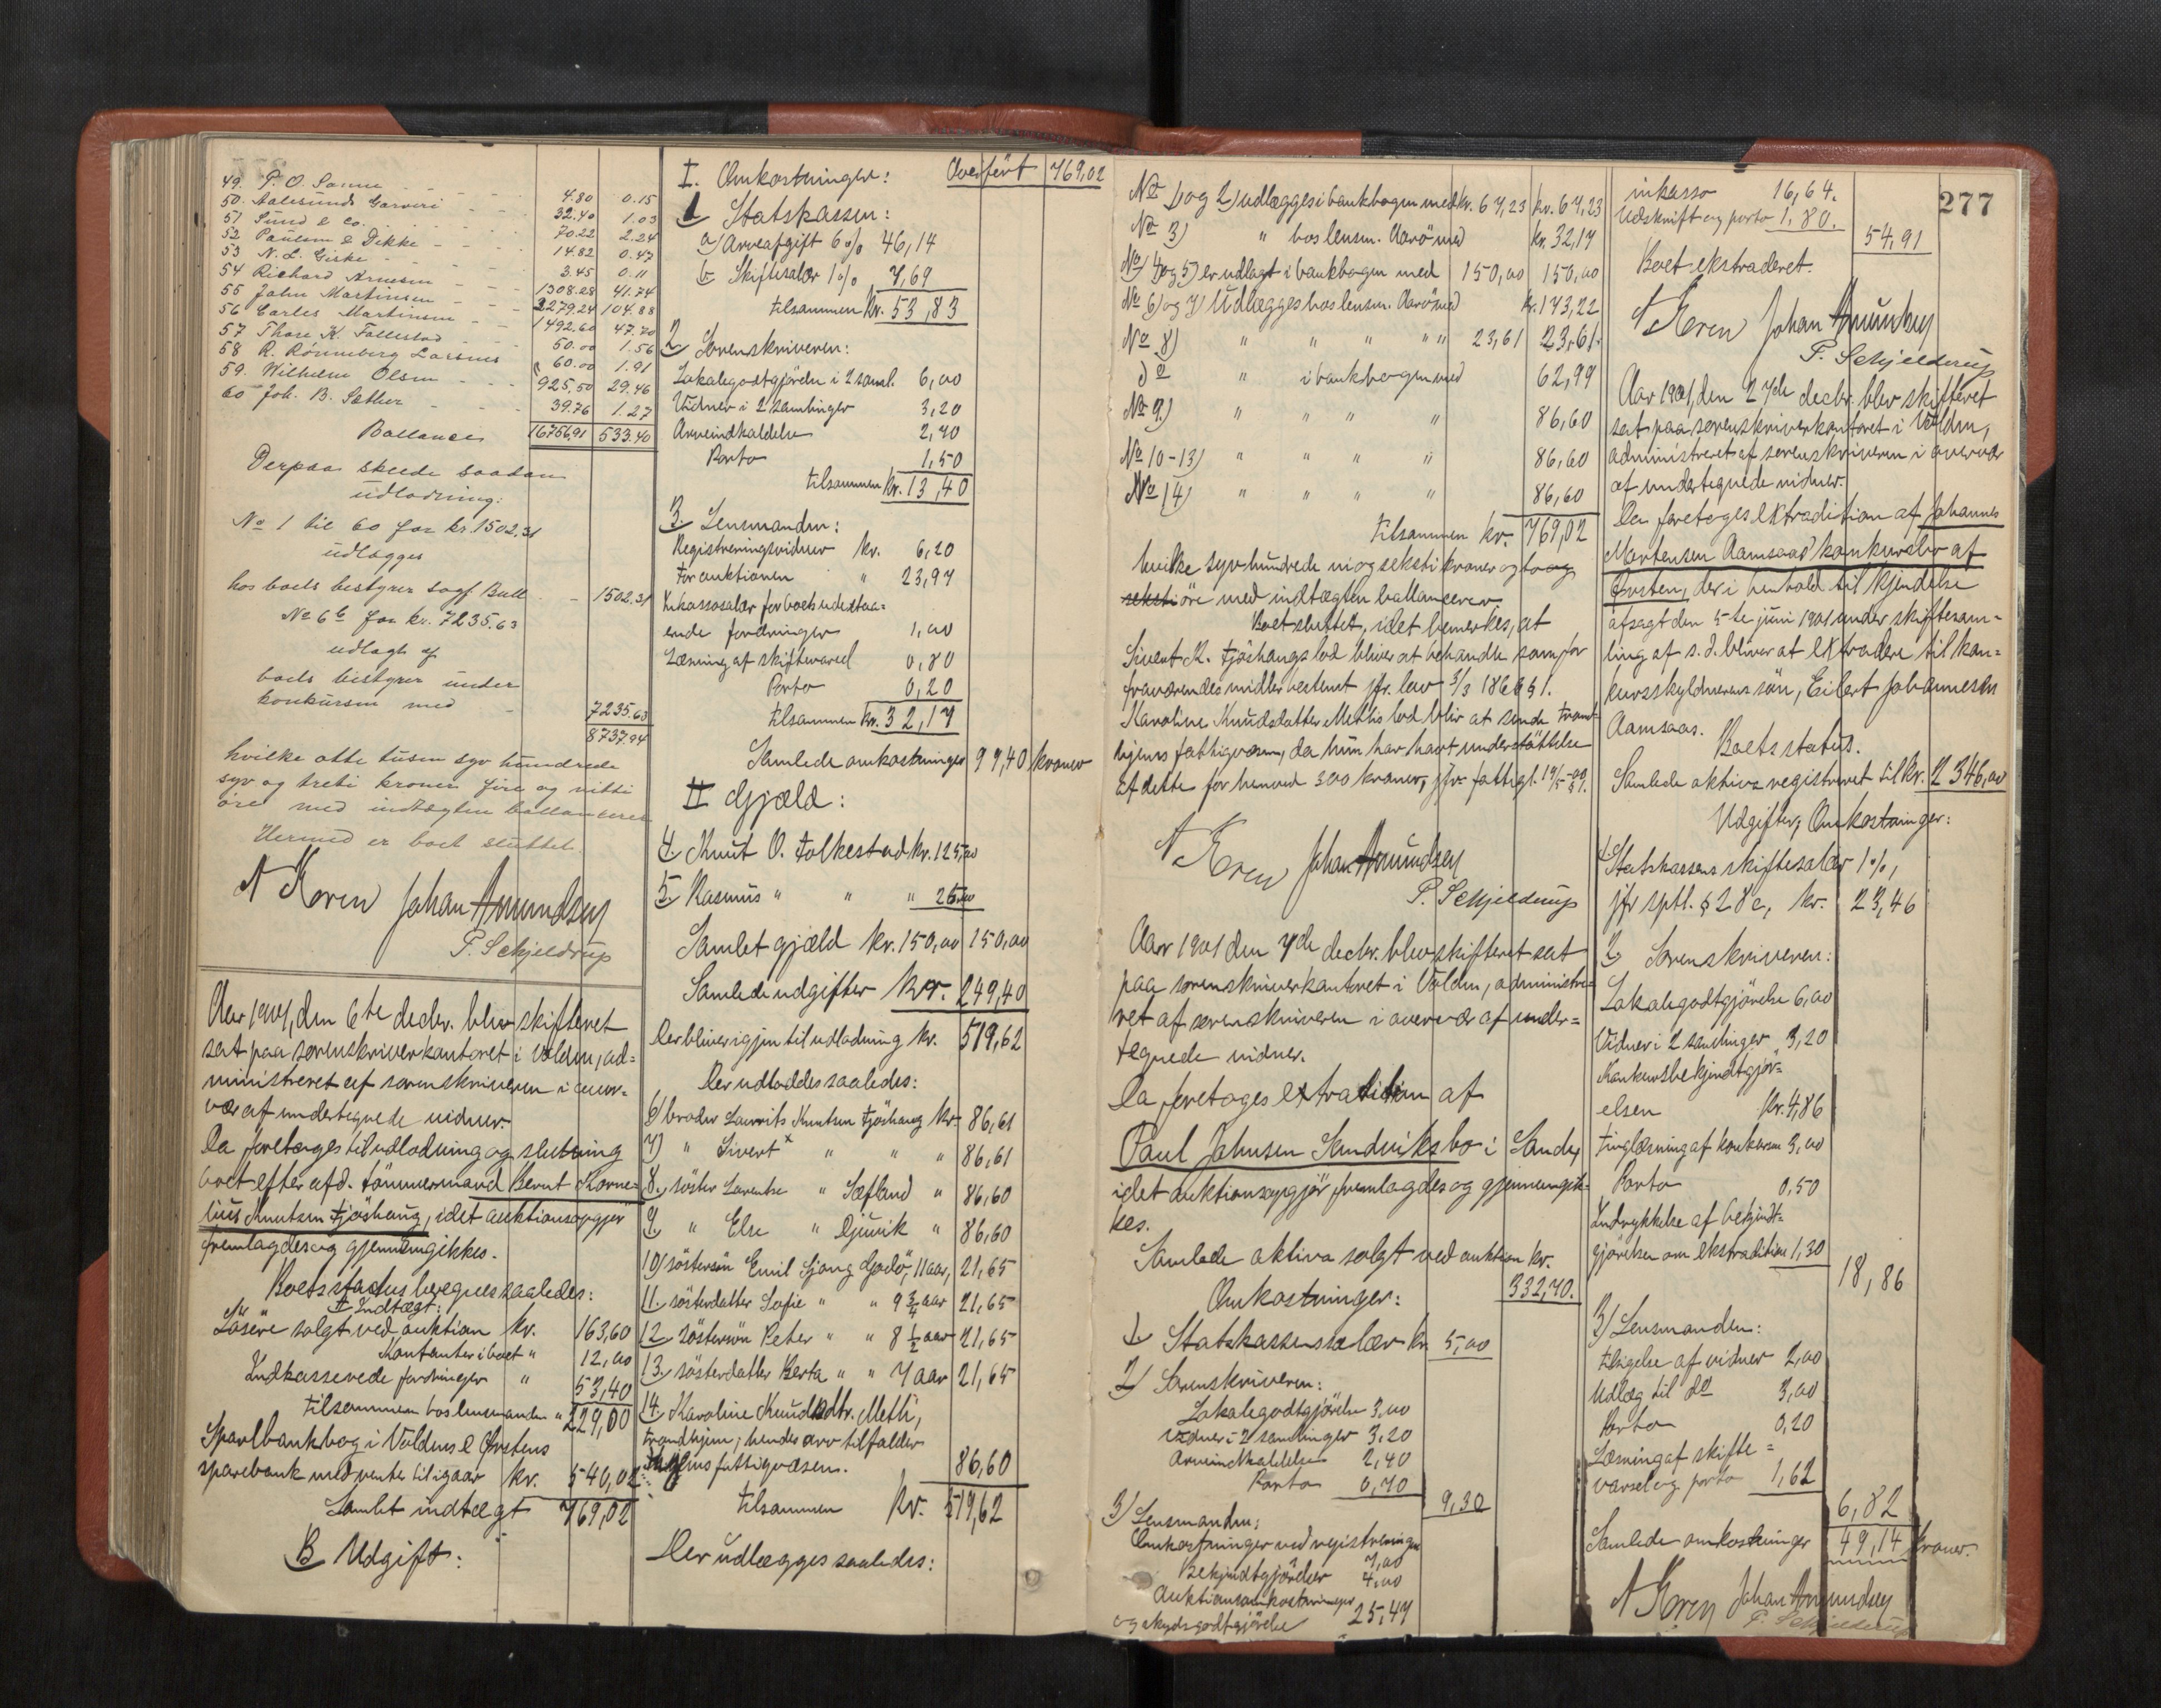 49. P. O. Sanne - - - 4.80 0.15
50. Aalesunds Garveri - - 32.40 1.03
51 Sund & Co. - - - 70.22 2.24
52 Paulsen & Dekke - - - 14.82 0.47
53 N. L. Giske - - - 3.45 0.11
54 Richard Arnesen - - 1308.28 41.74
55 John Martinsen - - 3279.24 104.88
56 Carles Martinsen - - 1492.60 47.70
57 Thore K. Follestad - - 50.00 1.56
58 R. Rönneberg Larsnes 60.00 1.91
59. Wilhelm Olsen - - - 925.50 29.46
60 Joh. B. Sæther - - - 39.76 1.27
Ballance 16756,91 533.40
Derpaa skeede saadan
udlodning:
No 1 til 60 faar kr. 1502.31
udlægges
hos boets bestyrer sagf. Bull - 1502.31
No 6 faar kr. 7235.63
udlagt af
boets bestyrer under
konkursen med - 7235.63
8737.94
hvilke otte tusen syv hundrede
syv og treti kroner fire og nitti
öre med indtægten ballancerer
Hermed er boet sluttet.
N Koren Johan Amundsen
P. Schjelderup
Aar 1901, den 6te decbr. blev skifteret
sat paa sorenskriverkontoret i Volden, ad=
ministreret af sorenskriveren i over-
vær af undertegnede vidner.
Da foretoges til udlodning og slutning
boet efter afd. tömmermand Bernt Korne=
lius Knutsen Fjöshaug, idet auktionsopgjör
fremlagdes og gjennemgikkes.
Boets status beregnes saaledes:
A Indtægt:
Lösöre solgt ved auktion kr. 163,60
Kontanter i boet " 12,00
Indkasserede fordringer " 53,40
tilsammen hos lensmanden " 229,00
Sparebankbog i Voldens & Örstens
sparebank med renter til igaar kr. 540,02
Samlet indtægt 769,02
B Udgift:
I. Omkostninger: Overfört 769,02
1. Statskassen:
a) Arveafgift 6 % 46,14
b Skiftesalær 1 % 7,69
tilsammen kr. 53,83
2. Sorenskriveren:
Lokalegodtgjörelse i 2 saml. 6,00
Vidner i 2 samlinger 3,20
Arveindkaldelse 2,70
Porto 1,50
tilsammen kr. 13,40
3. Lensmanden:
Registreringsvidner kr. 6,20
For auktionen " 23,97
Inkassosalær for boets udestaa=
ende fordringer 1,00
Læsning af skiftevarsel 0,80
Porto 0,20
tilsammen kr. 32,17
Samlede omkostninger 99,40 kroner
II Gjæld:
4. Knut O. Folkestad kr. 125,00
5. Rasmus " " " 25,00
Samlet gjæld kr. 150,00 150,00
Samlede udgifter kr. 249,40
Der bliver igjen til udlodning kr. 519,62
Der udloddes saaledes:
6) broder Laurits Knutsen Fjöshaug kr. 86,61
7) " Sivert x " " " 86,61
8. söster Laventse " Sæfland " 86,60
9. " Else " Djuvik " 86,60
10) söstersön Emil Sjong Godö, 11 aar, 21,65
11. sösterdatter Sofie " " 9 3/4 aar 21,65
12 söstersön Peter " " 8 1/2 aar 21,65
13. sösterdatter Berta " " 7 aar 21,65
14. Karoline Knudsdtr. Metli,
Trondhjem; hendes arv tilfalder
fattigvæsen. 86,60
tilsammen kr. 519,62
Der udlægges saaledes:
277
No 1) og 2) udlægges i bankbogen med kr. 67,23 kr. 67,23
No 3) " hos lensm. Aarö med kr. 32,17
No 4 og 5) er udlagt i bankbogen med 150,00 150,00
No 6) og 7) Udlægges hos lensm. Aarö med kr. 173,22
No 8) " " " " " 23,61 23,61
do " i bankbogen med 62,99
No 9.) " " " " 86,60
No 10-13) " " " " 86,60
No 14) " " " " 86,60
tilsammen kr. 769,02
hvilke syvhundrede niogseksti kroner og to og
seksti öre med indtægten ballancerer.
Boet sluttet, idet bemerkes, at
Sivert K. Fjöshaugs lod bliver at behandle som for
fraværendes midler bestemt jfr. lov 3/3 1866 § 1.
Karoline Knudsdatter Metlis lod blir at sende Trond-
hjems fattigvæsen, da hun har havt understöttelse
af dette for henved 300 kroner, jfr. fattigl. 19/5 -00 §
N Koren Johan Amundsen
P. Schjelderup
Aar 1901 den 7de decbr. blev skifteret sat
paa sorenskriverkontoret i Volden, administre=
ret af sorenskriveren i overvær af under=
tegnede vidner.
Da foretoges extradition af
Paul Johnsen Sandviks bo i Sande,
idet auktionsopgjör fremlagdes og gjennemgik-
kes.
Samlede aktiva solgt ved auktion kr.
332,70.
Omkostninger:
1. Statskassens salær kr. 5,00
2) Sorenskriveren:
Lokalegodtgjörelse 3,00
Vidner i 2 samlinger 3,20
Arveindkaldelse 2,40
Porto 0,70
9,30
3) Lensmanden:
Omkostninger ved registreringen 7,00
Bekjendtgjörelser 4,00
Auktionsomkostninger
og skydsgodtgjörelse 25,47
inkasso 16,64.
Udskrift og porto 1,80.
54,91
Boet ekstraderet.
N Koren Johan Amundsen
P. Schjelderup
Aar 1901, den 27de decbr. blev skifteret
sat paa sorenskriverkontoret i Volden,
administreret af sorenskriveren i overvær
af undertegnede vidner.
Da foretoges extradition af Johannes
Martensen Aamsaas' konkursbo af
Örsten, der i henhold til kjendelse
afsagt den 5-te juni 1901 under skiftesam=
ling af s. d. bliver at extradere til kon=
kursskyldnerens sön, Eilert Johannesen
Aamsaas.
Boets status.
Samlede aktiva registreret til kr. 2346,00
Udgifter; Omkostninger:
1. Statskassens skiftesalær 1 %,
jfr sptl. § 28c, kr. 23,46
2. Sorenskriveren:
Lokalegodtgjörelse 6,00
Vidner i 2 samlinger 3,20
Konkursbekjendtgjör=
elsen kr. 4,86
Tinglæsning af konkursen 3,00
Porto 0,50
Indrykkelse af bekjendt=
gjörelsen om ekstradition 1,30
18,86
3) Lensmanden:
tilsigelse af vidner 2,00
Udlæg til do 3,00
Porto 0,20
Læsning af skifte=
varsel og porto 1,62
6,82
Samlede omkostninger 49,14 kroner.
N Koren Johan Amundsen
P. Schjelderup